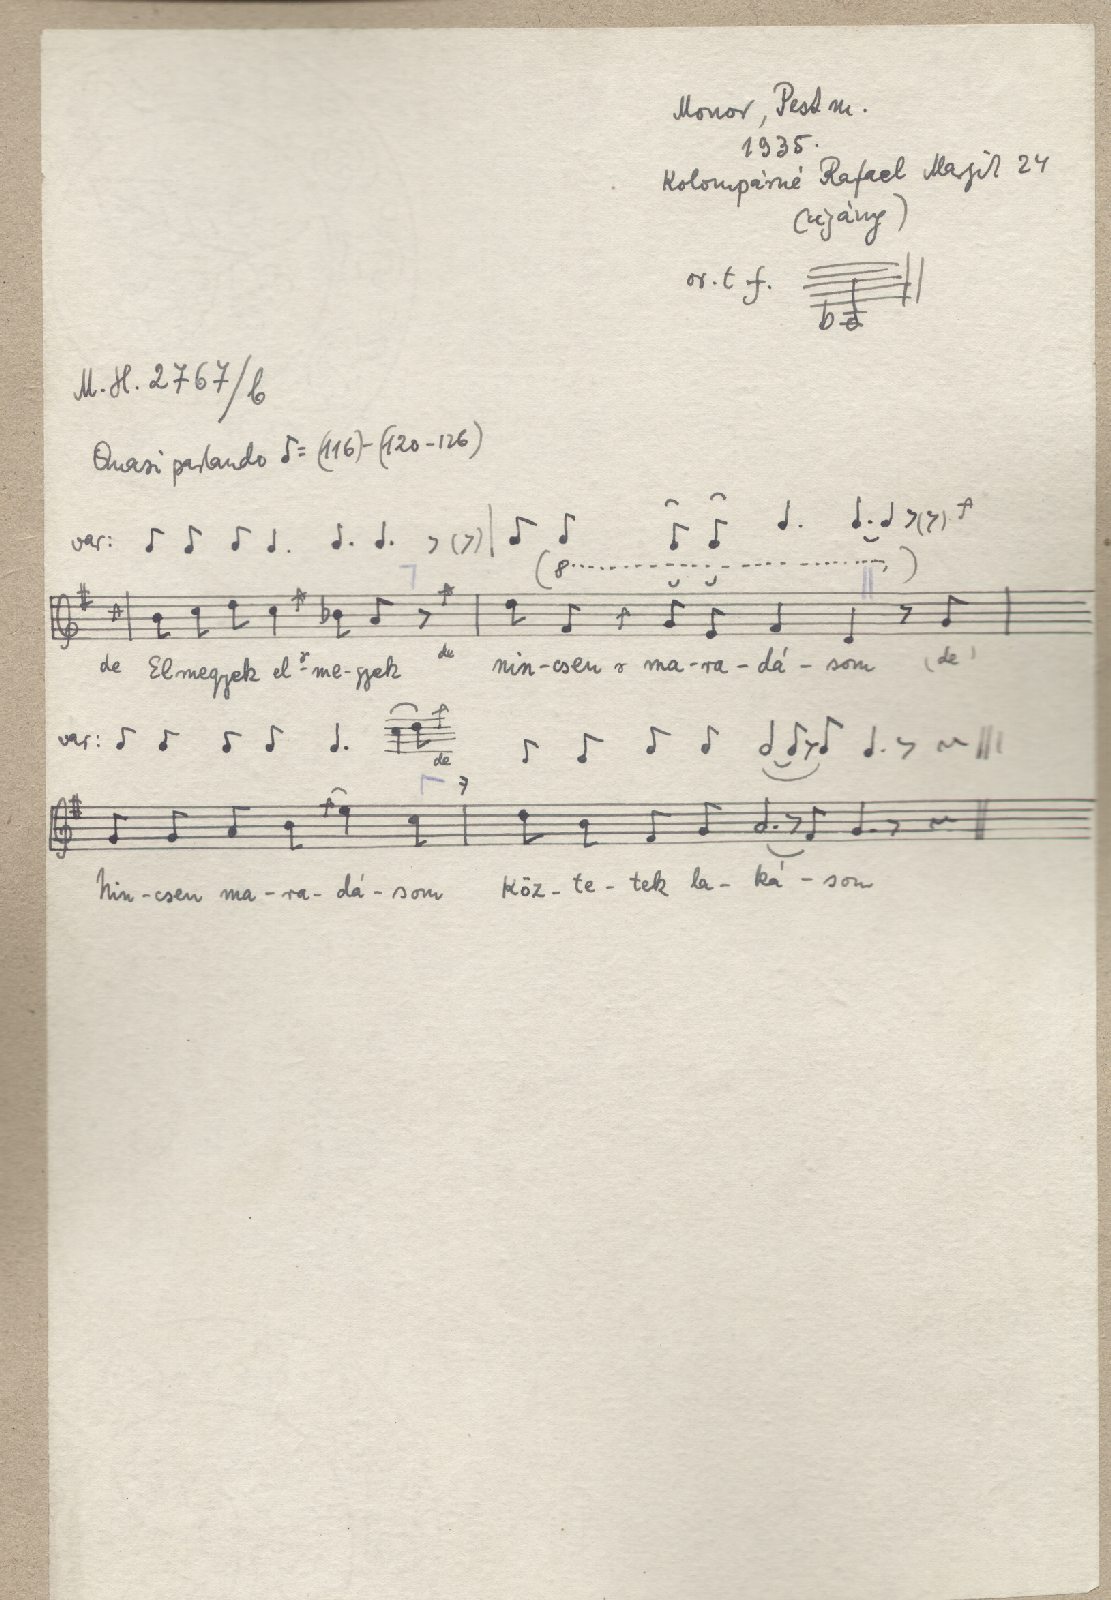 Monor, Pest m.
1935.
Kolompárné Rafael Margit 24
(cigány)
or. t f.
M.H. 2767/b
Quasi parlando ♪= (116)-(120-126)
var:
(8
de El megyek el r-me-gyek de nin-csen r ma-ra-dá-som (de)
var:
de
7
Nin-csen ma-ra-dá-som Köz-te-tek la-ká-som